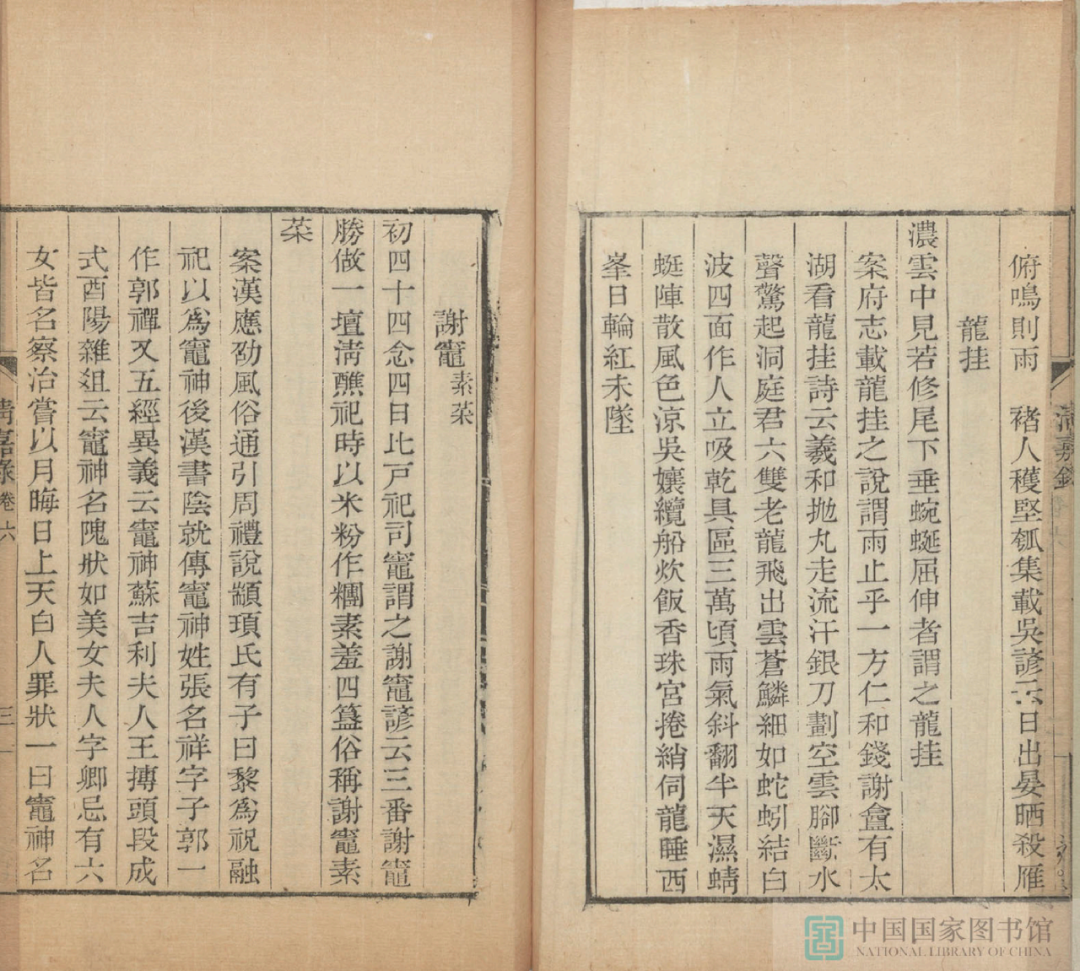 清嘉錄
俯鳴則雨　褚人穫堅瓠集載吳諺云日出晏晒殺雁
龍挂
濃雲中見若修尾下垂蜿蜒屈伸者謂之龍挂
案府志載龍挂之說謂雨止乎一方仁和錢謝盦有太
湖看龍挂詩云羲和拋丸走流汗銀刀劃空雲腳斷水
聲驚起洞庭君六雙老龍飛出雲蒼鱗細如蛇蚓結白
波四面作人立吸乾具區三萬頃雨氣斜翻半天濕蜻
蜓陣散風色涼吳孃纜船炊飯香珠宮捲綃伺龍睡西
峯日輪紅未墜
謝竈素菜
初四十四念四日比戸祀司竈謂之謝竈諺云三番謝竈
勝做一壇淸醮祀時以米粉作糰素羞四簋俗稱謝竈素
菜
案漢應劭風俗通引周禮說顓頊氏有子曰黎爲祝融
祀以爲竈神後漢書陰就傳竈神姓張名祥字子郭一
作郭禪又五經異義云竈神蘇吉利夫人王摶頭段成
式酉陽雜俎云竈神名隗狀如美女夫人字卿忌有六
女皆名察治嘗以月晦日上天白人罪狀一曰竈神名
清嘉錄 卷六
三
中国国家图书馆
NATIONAL LIBRARY OF CHINA